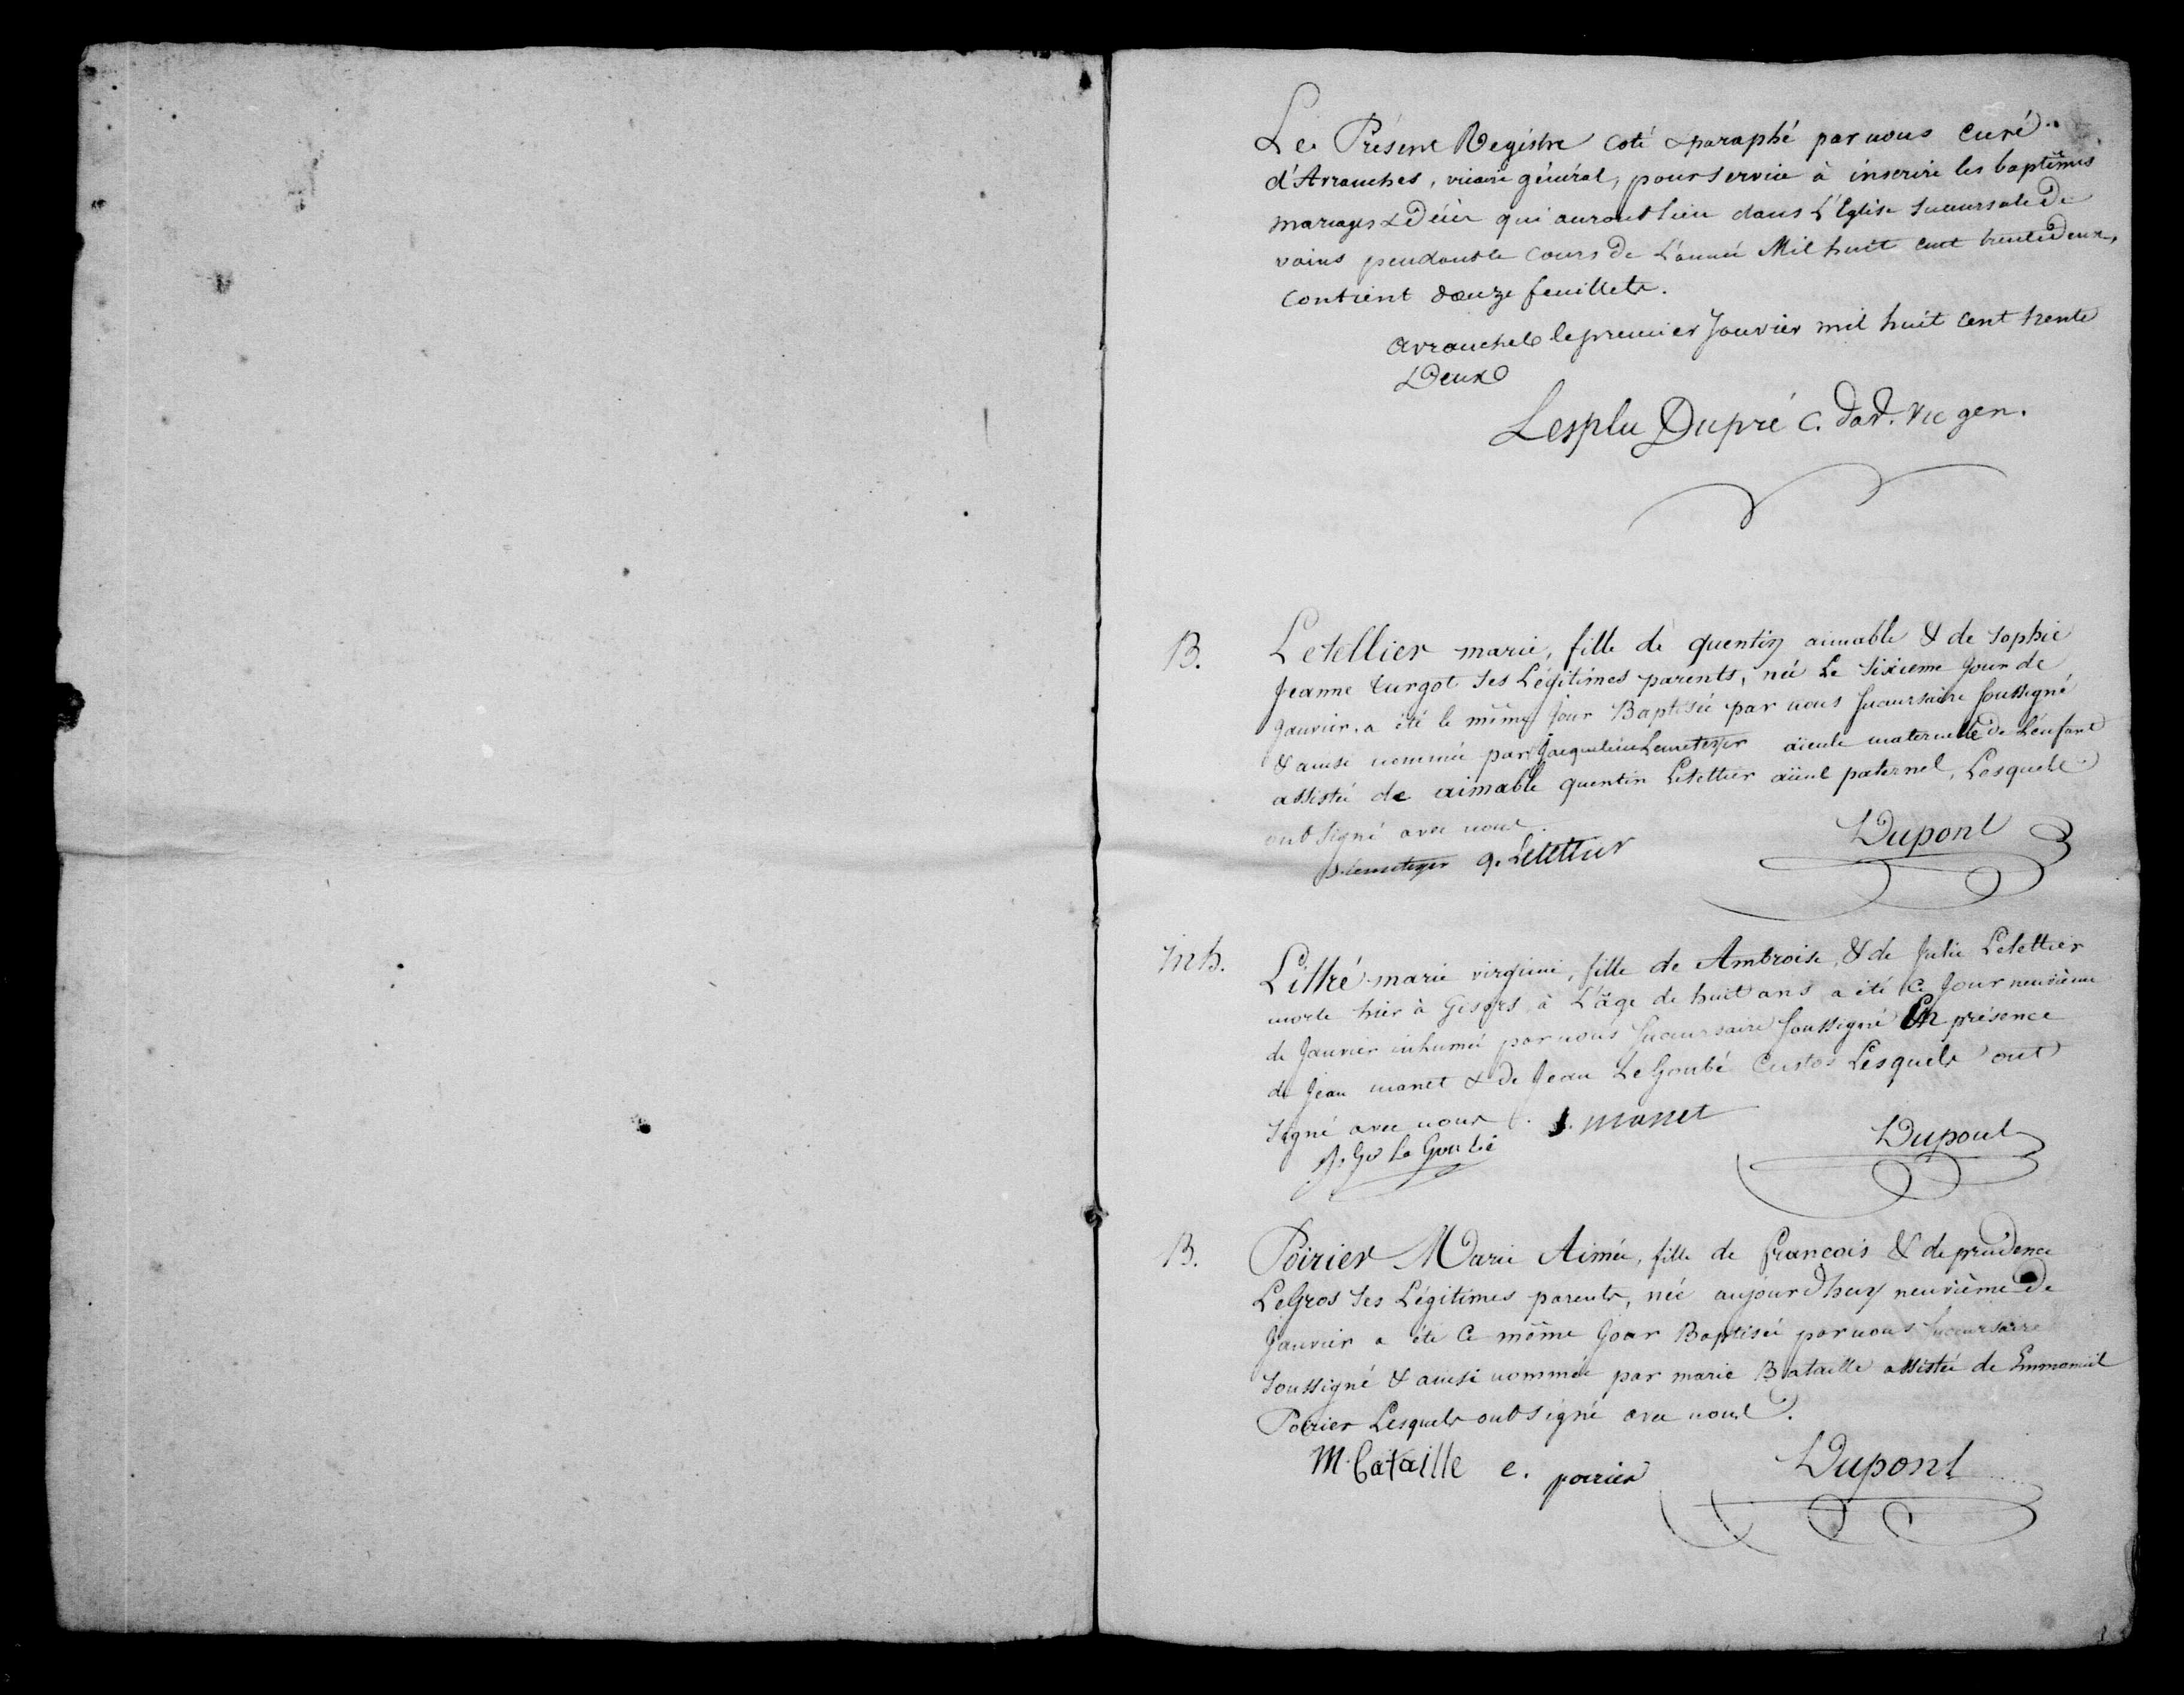 Le Présent Registre coté & paraphé par nous curé
d'Avranches, vicaire général, pour servir à inscrire les baptêmes
mariages & décès qui auront lieu dans L'Eglise succursale de
vains pendant le cours de L'année Mil huit cent trente deux,
contient douze feuillets.
avranches le premier Janvier mil huit cent trente
Deux
Lesplu Dupré c. d'av. vic gen.
B. Letellier marie, fille de quentin aimable & de sophie
Jeanne turgot ses Légitimes parents, née Le sixieme jour de
Janvier, a été le même jour Baptisée par nous succursaire soussigné
& ainsi nommée par Jacqueline aïeule maternelle de L'enfant
assistée de aimable quentin Letellier aïeul paternel, Lesquels
ont signé avec nous.
q. Letellier Dupont
inh. Littré marie virginie, fille de Ambroise, & de Julie Letellier
morte hier à Gisors à L'âge de huit ans a été ce jour neuvième
de Janvier inhumée par nous succursaire soussigné En présence
de Jean manet & de Jean Le Goubé Custos Lesquels ont
signé avec nous. J. manet
Le Goubé Dupont
B. Poirier Marie Aimée, fille de francois & de prudence
LeGros ses Légitimes parents, née aujourd'huy neuvième de
Janvier a été Ce même Jour Baptisée par nous succursaire
soussigné & ainsi nommée par marie Bataille assistée de Emmanuel
Poirier Lesquels ont signé avec nous.
M. bataille e. poirier Dupont